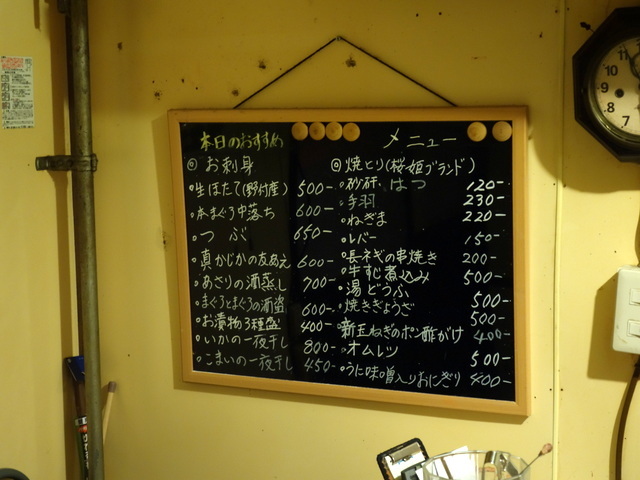 本日のおすすめ
◎ お刺身
・生ほたて(野付産) 500-
・本まぐろ中落ち 600-
・つぶ 650-
・真かじかの友あえ 600-
・あさりの酒蒸し 700-
・まぐろとまぐろの酒盗 600-
・お漬物3種盛 400-
・いかの一夜干し 800-
・こまいの一夜干し 450-
メニュー
◎ 焼とり(桜姫ブランド)
・砂肝・はつ 120-
・手羽 230-
・ねぎま 220-
・レバー 150-
・長ネギの串焼き 200-
・牛すじ煮込み 500-
・湯どうふ 500-
・焼きぎょうざ 500-
・新玉ねぎのポン酢がけ 400-
・オムレツ 500-
・うに味噌入りおにぎり 400-
12
11
10
9
8
7
6
5